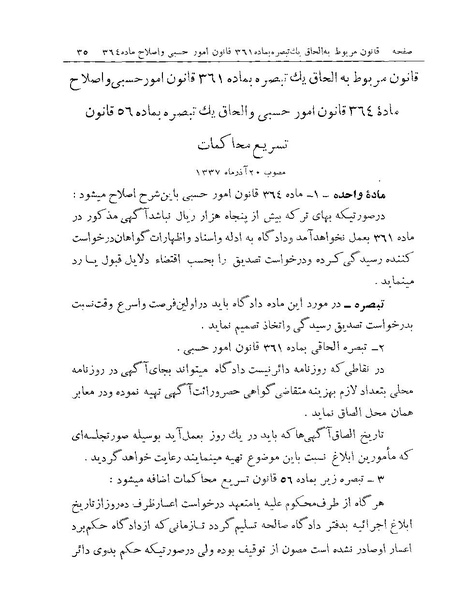 صفحه قانون مربوط به الحاق یك تبصره بماده ۳۶۱ قانون امور حسبی و اصلاح ماده ۳۶۴ ۳۵
قانون مربوط به الحاق یك تبصره بماده ۳۶۱ قانون امور حسبی و اصلاح
مادهٔ ۳۶۴ قانون امور حسبی و الحاق یك تبصره بماده ۵۶ قانون
تسریع محاکمات
مصوب ۲۰ آذر ماه ۱۳۳۷
مادهٔ واحده ــ ۱ــ ماده ۳۶۴ قانون امور حسبی باین شرح اصلاح میشود :
درصورتیکه بهای ترکه بیش از پنجاه هزار ریال نباشد آگهی مذکور در
ماده ۳۶۱ بعمل نخواهد آمد و دادگاه به ادله و اسناد و اظهارات گواهان درخواست
کننده رسیدگی کرده و درخواست تصدیق را بحسب اقتضاء دلایل قبول یا رد
مینماید .
تبصره ــ در مورد این ماده دادگاه باید در اولین فرصت و اسرع وقت نسبت
بدرخواست تصدیق رسیدگی و اتخاذ تصمیم نماید .
۲ــ تبصره الحاقی بماده ۳۶۱ قانون امور حسبی .
در نقاطی که روزنامه دائر نیست دادگاه میتواند بجای آگهی در روزنامه
محلی بتعداد لازم بهزینه متقاضی گواهی حصر وراثت آگهی تهیه نموده و در معابر
همان محل الصاق نماید .
تاریخ الصاق آگهی‌ها که باید در یك روز بعمل آید بوسیله صورتجلسه‌ای
که مأمورین ابلاغ نسبت باین موضوع تهیه مینمایند رعایت خواهد گردید .
۳ ــ تبصره زیر بماده ۵۶ قانون تسریع محاکمات اضافه میشود :
هر گاه از طرف محکوم علیه یا متعهد درخواست اعسار ظرف ده روز از تاریخ
ابلاغ اجرائیه بدفتر دادگاه صالحه تسلیم گردد تا زمانی که از دادگاه حکم برد
اعسار او صادر نشده است مصون از توقیف بوده ولی درصورتیکه حکم بدوی دائر